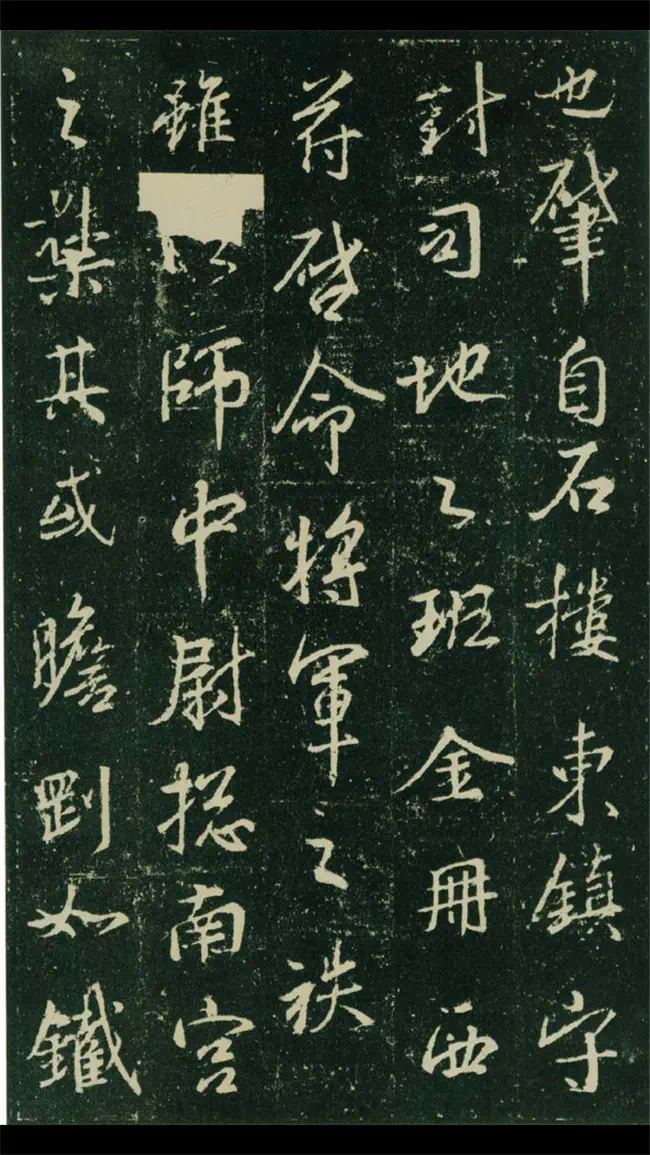 也肇自石樓東鎮守
封司地之班金冊西
符啓命將軍之袟
雖以師中尉揔南宮
之其或瞻剛如鐵